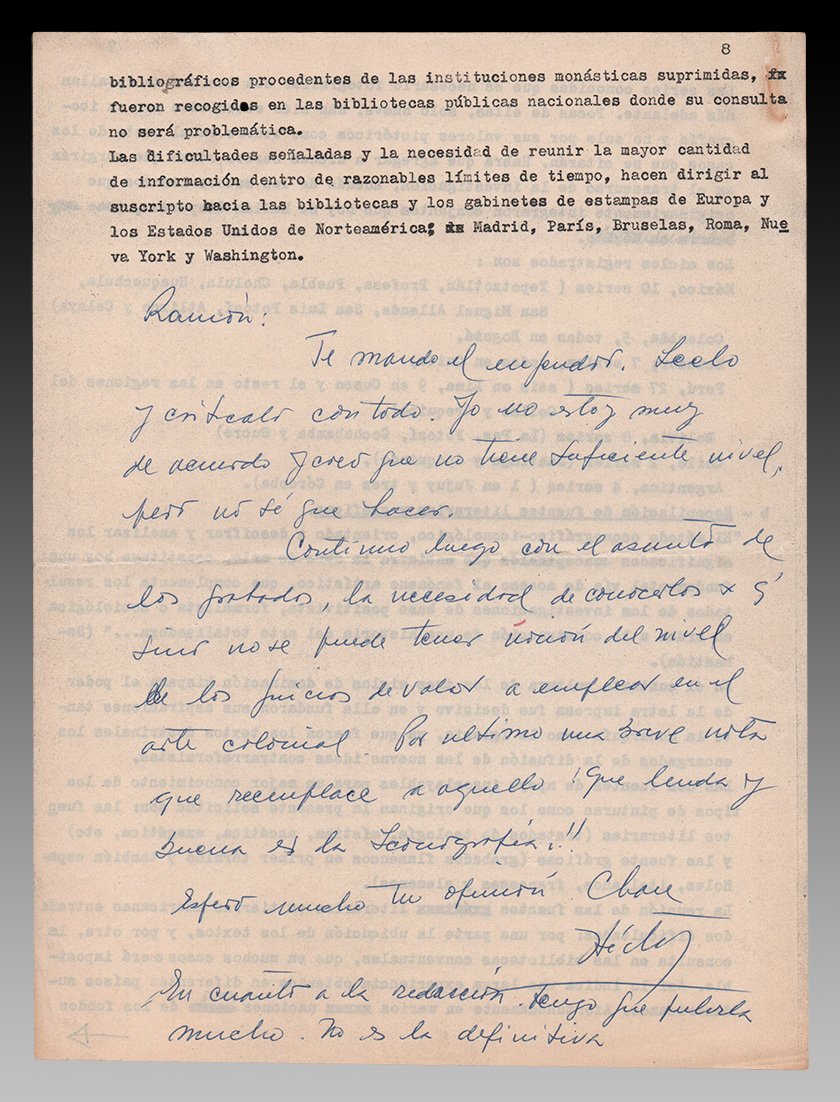 8
bibliográficos procedentes de las instituciones monásticas suprimidas,
fueron recogidos en las bibliotecas públicas nacionales donde su consulta
no será problemática.
Las dificultades señaladas y la necesidad de reunir la mayor cantidad
de información dentro de razonables límites de tiempo, hacen dirigir al
suscripto hacia las bibliotecas y los gabinetes de estampas de Europa y
los Estados Unidos de Norteamérica; Madrid, París, Bruselas, Roma, Nue
va York y Washington.
Ramón:
Te mando el engendro. Leelo
y criticalo con todo. Yo no estoy muy
de acuerdo y creo que no tiene suficiente nivel,
pero no sé que hacer.
Continuo luego con el asunto de
los grabados, la necesidad de conocerlos x q'
sino no se puede tener noción del nivel
de los juicios de valor a emplear en el
arte colonial. Por ultimo una breve nota
que reemplace a aquello ¡Que linda y
buena es la Iconografía!!!
Espero mucho tu opinión. Chau
Héctor
En cuanto a la redacción tengo que pulirla
mucho. No es la definitiva